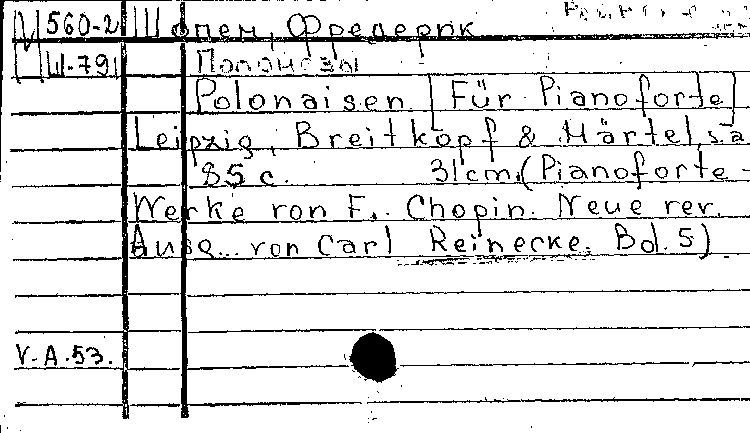 М 560-2 Шопен, Фредерик
Ш-791 Полонезы
Polonaisen [Für Pianoforte]
Leipzig, Breitkopf & Härtel, s.a
85 c. 31cm. (Pianoforte-
Werke von F. Chopin. Neue rev.
Ausg... von Carl Reinecke. Bd. 5)
V.A.53.